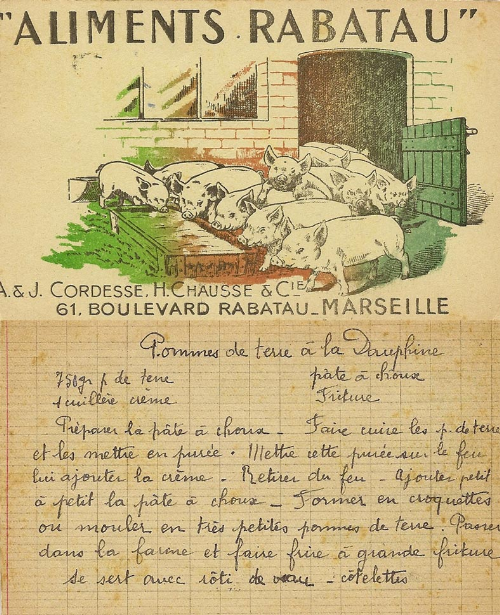 "ALIMENTS RABATAU"
A. & J. CORDESSE, H. CHAUSSE & CIE
61. BOULEVARD RABATAU_MARSEILLE
Pommes de terre à la Dauphine
750gr p de terre pâte à choux
1 cuillère crème Friture
Préparer la pâte à choux _ Faire cuire les p. de terre
et les mettre en purée. Mettre cette purée sur le feu
lui ajouter la crème _ Retirer du feu _ Ajouter petit
à petit la pâte à choux _ Former en croquettes
ou mouler en très petites pommes de terre. Passer
dans la farine et faire frire à grande friture
se sert avec rôti de veau _ côtelettes